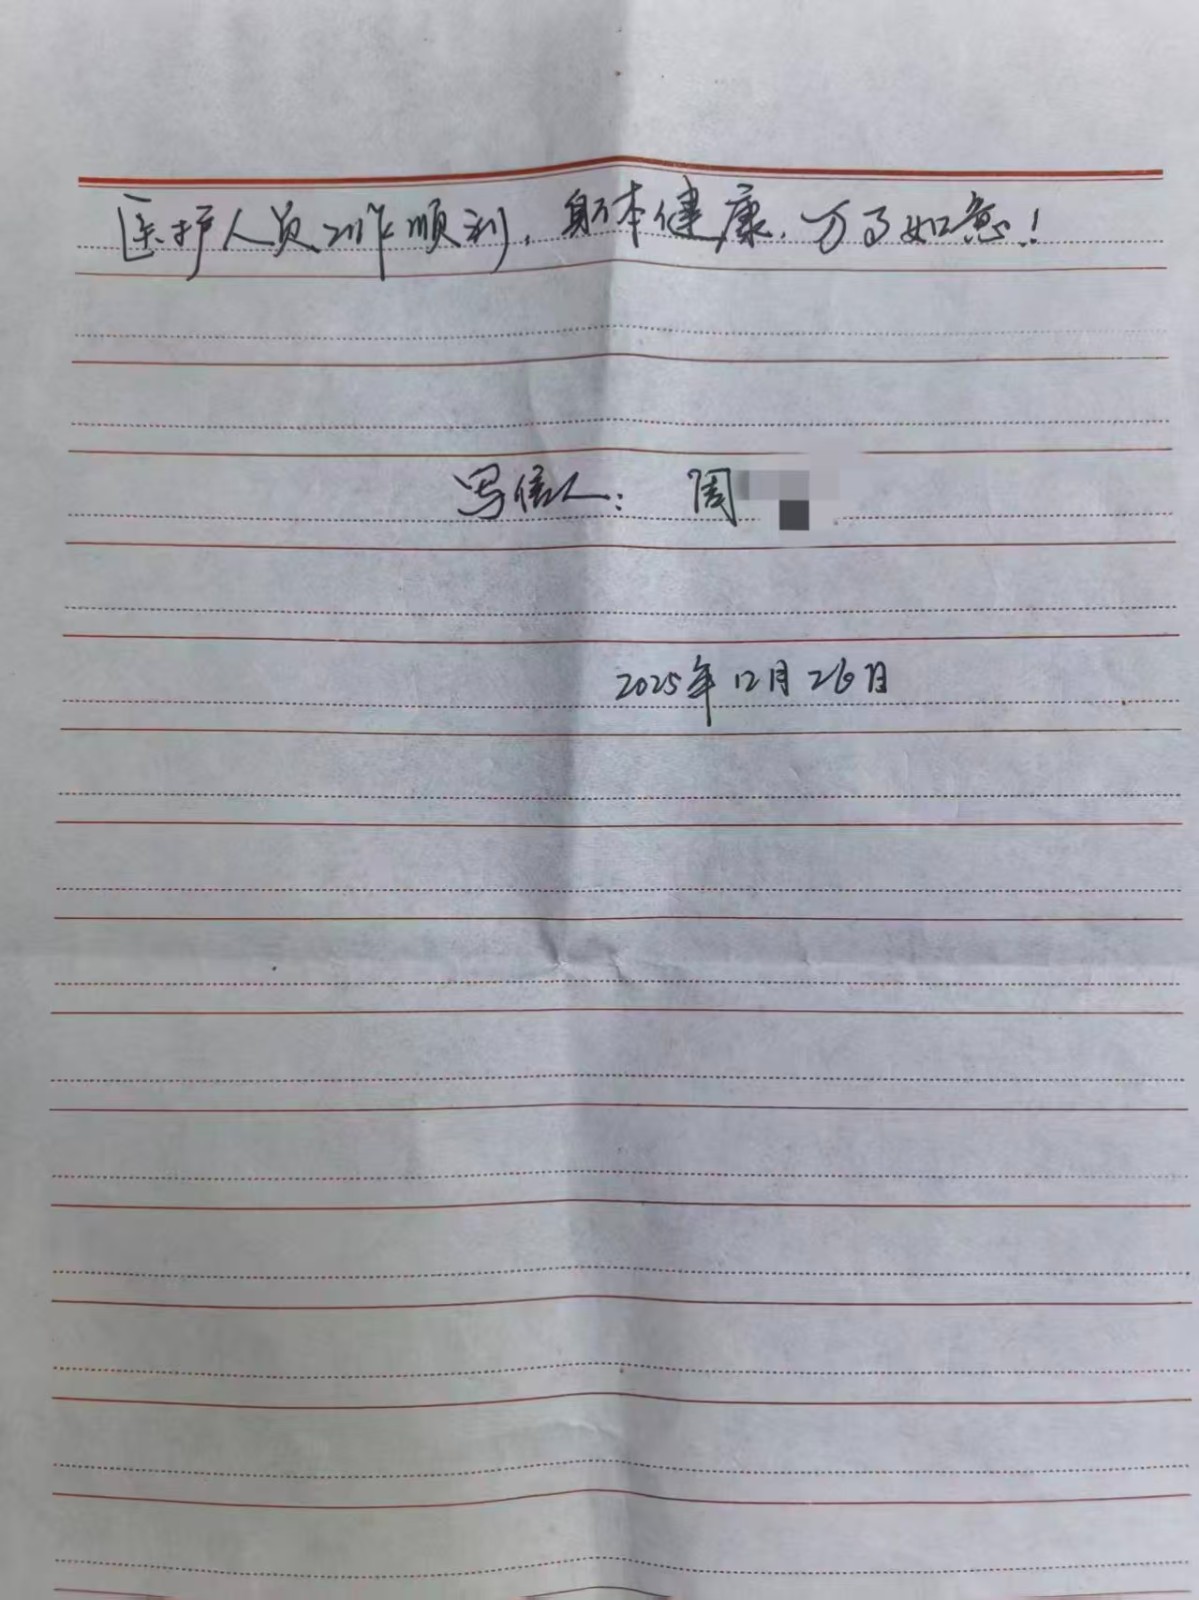 医护人员工作顺利，身体健康，万事如意！
写信人：周
2025年12月26日